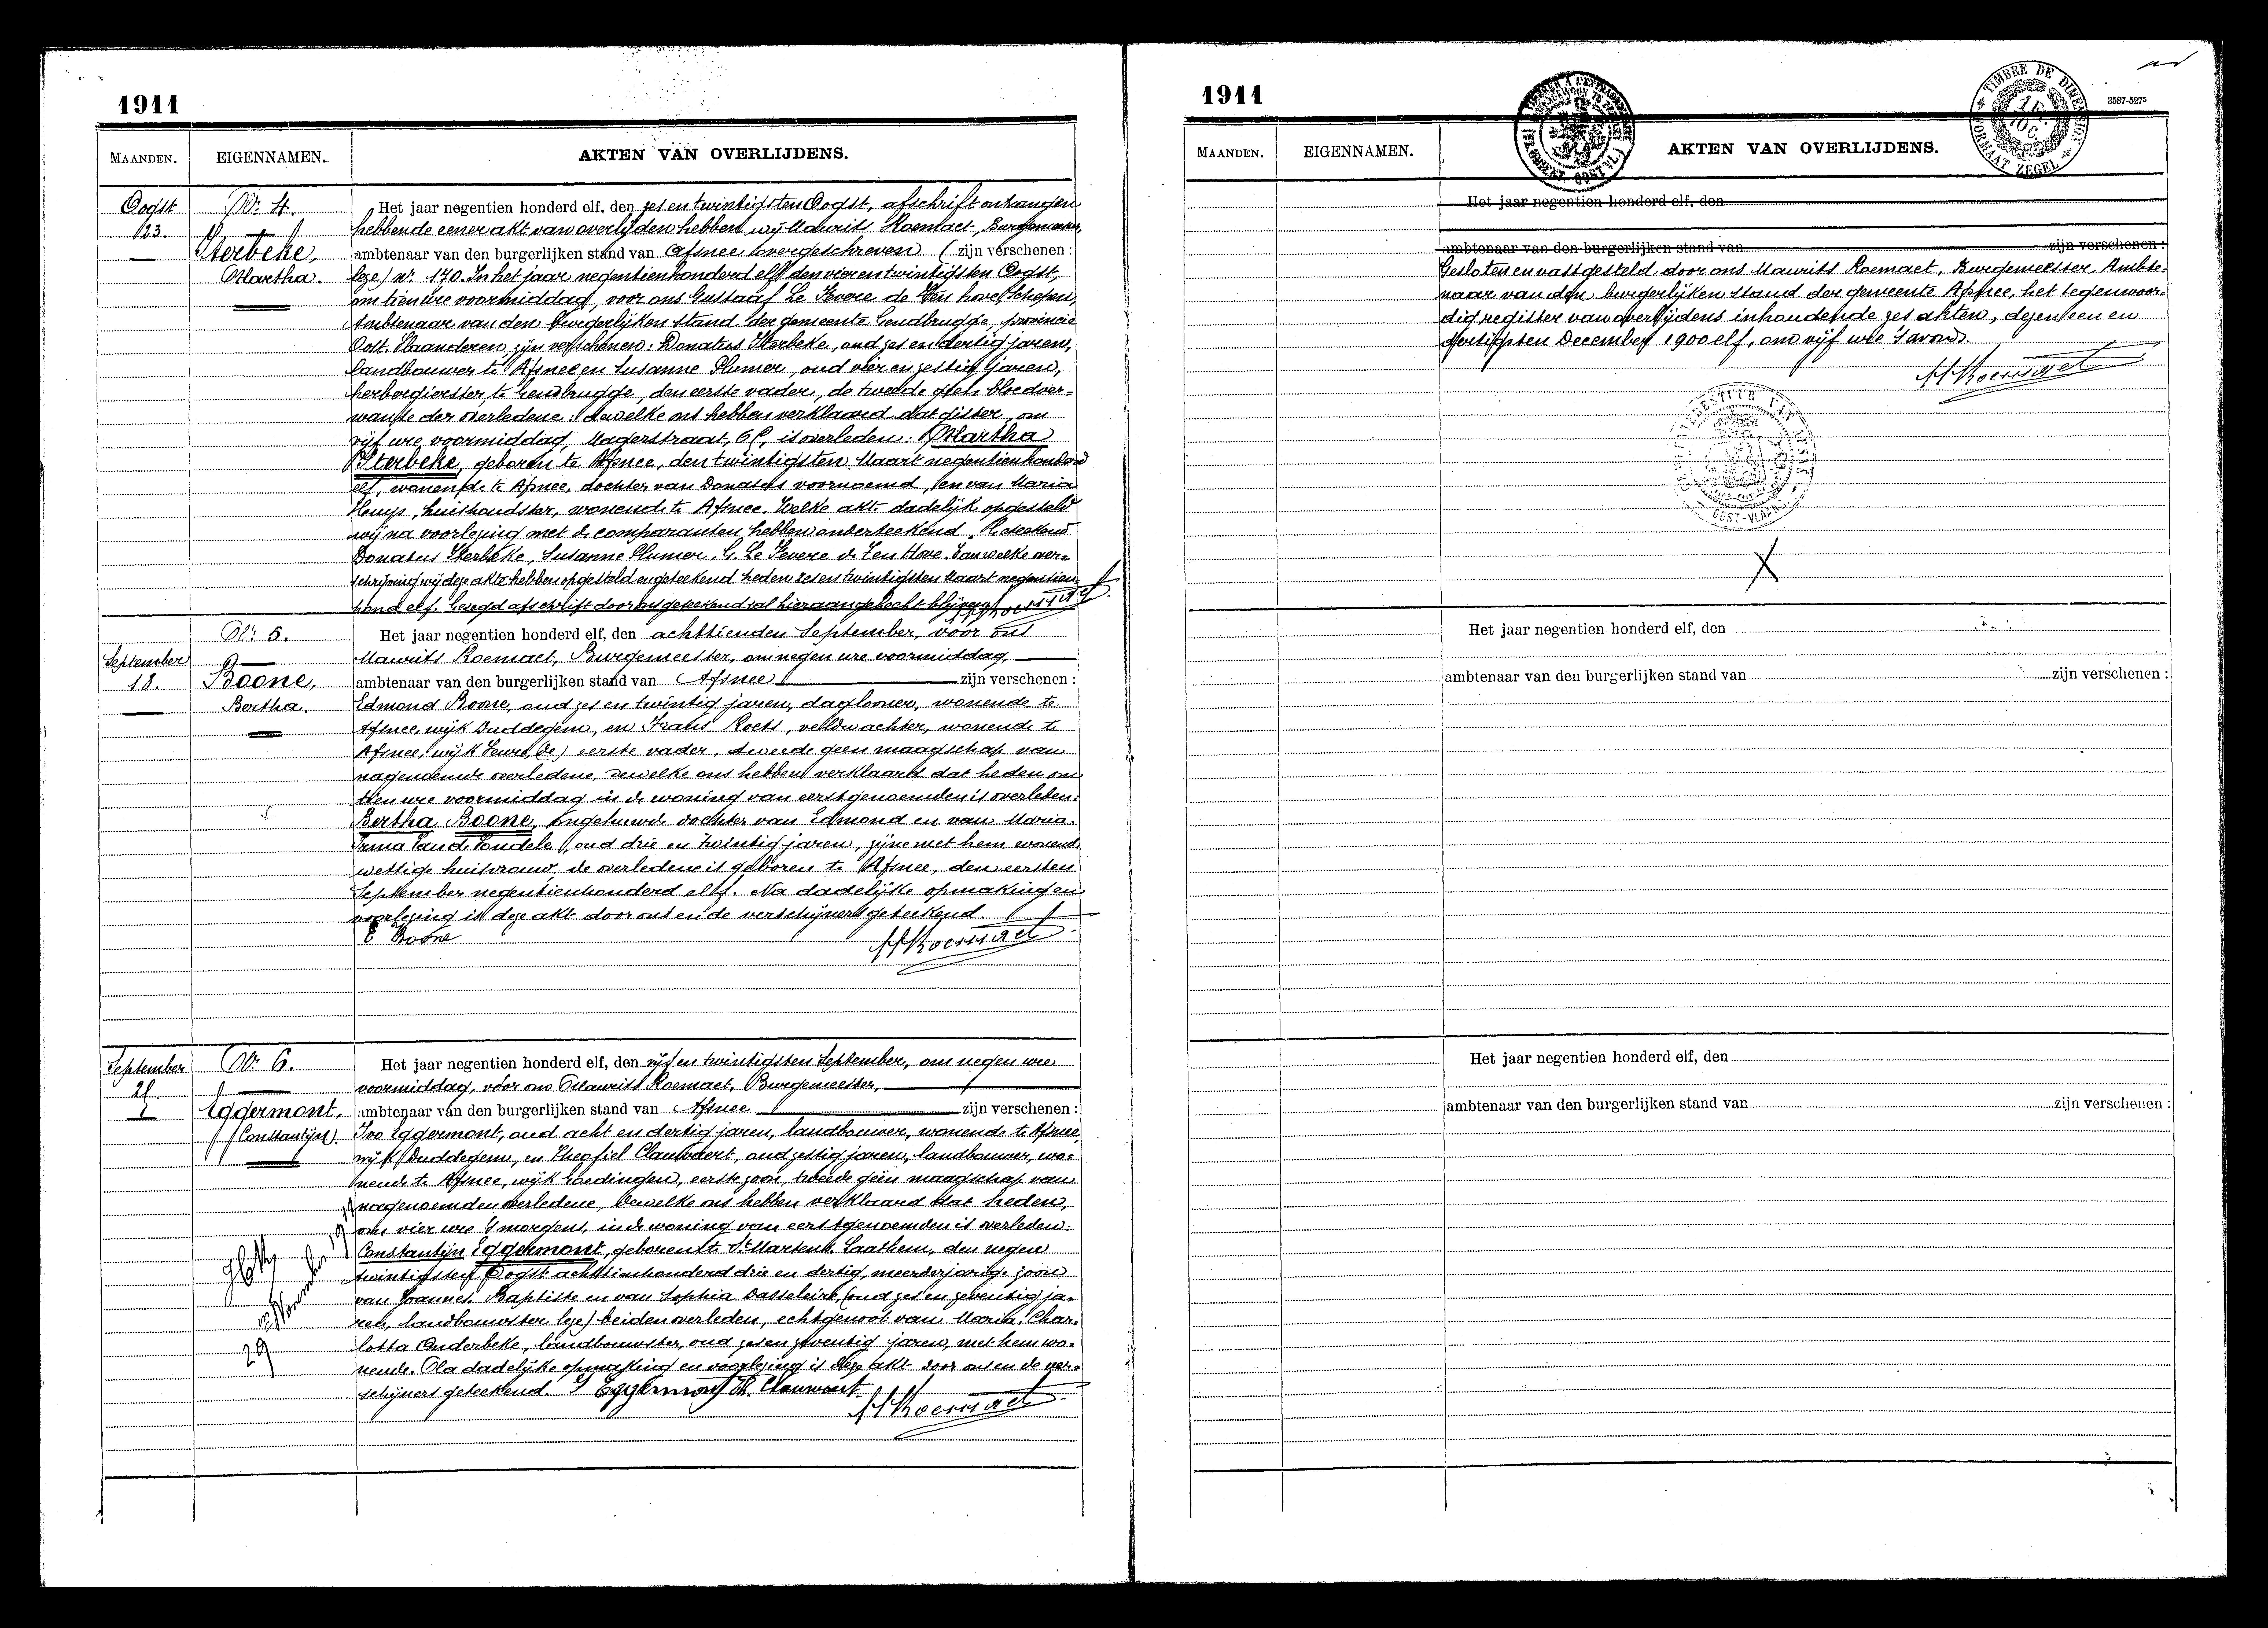 1911
MAANDEN. EIGENNAMEN. AKTEN VAN OVERLIJDENS.
Oogst
23.
Nr 4.
Sterbeke,
Martha.
Het jaar negentien honderd elf, den zes en twintigsten Oogst, afschrift ontvangen
hebbende eener akt van overlijden hebben wij Maurits Roemaet, Burgemeester,
ambtenaar van den burgerlijken stand van Afsnee overgeschreven (zijn verschenen:
leze) nr. 170. In het jaar negentienhonderd elf den vierentwintigsten Oogst,
om tien ure voormiddag, voor ons Gustaaf Le Fevere de Ten hove, Schepen,
Ambtenaar van den burgerlijken stand der gemeente Gendbrugge, provincie
Oost-Vlaanderen zijn verschenen: Donatus Sterbeke, oud zes en dertig jaren,
landbouwer te Afsnee en Susanne Plumer, oud vier en zestig jaren,
herbergierster, te Gendbrugge, den eerste vader, de tweede geen bloedver-
wante der overledene: dewelke ons hebben verklaard dat gister, om
vijf ure voormiddag, Magerstraat, is overleden: Martha
Sterbeke, geboren te Afsnee, den twintigsten Maart negentienhonderd
elf, wonende te Afsnee, dochter van Donatus voornoemd, en van Maria
huishoudster, wonende te Afsnee. Welke akt dadelijk opgesteld
wij na voorlezing met de comparanten hebben onderteekend. Geteekend
Donatus Sterbeke, Susanne Plumer, G. Le Fevere de Ten Hove. Van welke over-
schrijving wij deze akte hebben opgesteld en geteekend heden zes en twintigsten Maart negentien
hond elf. Gezegd afschrift door ons geteekend zal hieraan gehecht blijven. MRoemaet
September
18.
Nr 5.
Boone,
Bertha.
Het jaar negentien honderd elf, den achttienden September, voor ons
Maurits Roemaet, Burgemeester, om negen ure voormiddag,
ambtenaar van den burgerlijken stand van Afsnee zijn verschenen:
Edmond Boone, oud zes en twintig jaren, daglooner, wonende te
Afsnee, wijk Duddegem, en Frans Roets, veldwachter, wonende te
Afsnee, wijk eerste vader, tweede geen maagschap van
nagenoemde overledene, dewelke ons hebben verklaard dat heden om
ure voormiddag in de woning van eerstgenoemden is overleden:
Bertha Boone, ongehuwde dochter van Edmond en van Maria
Irma oud drie en twintig jaren, zijne met hem wonende
wettige huisvrouw, de overledene is geboren te Afsnee, den eersten
September negentienhonderd elf. Na dadelijke opmaking en
voorlezing is deze akt door ons en de verschijners geteekend.
E Boone MRoemaet
September
Nr 6.
Eggermont,
Constantijn
Het jaar negentien honderd elf, den vijf en twintigsten September, om negen ure
voormiddag, vóór ons Maurits Roemaet, Burgemeester,
ambtenaar van den burgerlijken stand van Afsnee zijn verschenen:
Ivo Eggermont, oud acht en dertig jaren, landbouwer, wonende te Afsnee,
wijk Duddegem, en Theofiel Clauwaert, oud zestig jaren, landbouwer, wo-
nende te Afsnee, wijk eerste zoon, tweede geen maagschap van
nagenoemden overledene, dewelke ons hebben verklaard dat heden,
om vier ure 's morgens, in de woning van eerstgenoemden is overleden:
Constantijn Eggermont, geboren te St. Martens Laathem, den negen
twintigsten Oogst achttienhonderd drie en dertig, meerderjarige zoon
van Joannes Baptiste en van Sophia (oud zes en zeventig ja-
ren, landbouwster leze) beiden overleden, echtgenoot van Maria Char-
lotta Onderbeke, landbouwster, oud zes en zeventig jaren, met hem wo-
nende. Na dadelijke opmaking en voorlezing is deze akt door ons en de ver-
schijners geteekend. I Eggermont Th. Clauwaert
MRoemaet
29
1911
TIMBRE DE DIMENSION
FORMAAT ZEGEL
3587-5275
MAANDEN. EIGENNAMEN. AKTEN VAN OVERLIJDENS.
Het jaar negentien honderd elf, den
ambtenaar van den burgerlijken stand van zijn verschenen:
Gesloten en vastgesteld door ons Maurits Roemaet, Burgemeester, Ambte-
naar van den burgerlijken stand der gemeente Afsnee, het tegenwoor-
dig register van overlijdens inhoudende zes akten, dezen een en
dertigsten December 1900 elf, om vijf ure 's avonds.
MRoemaet
Het jaar negentien honderd elf, den
ambtenaar van den burgerlijken stand van zijn verschenen:
Het jaar negentien honderd elf, den
ambtenaar van den burgerlijken stand van zijn verschenen: